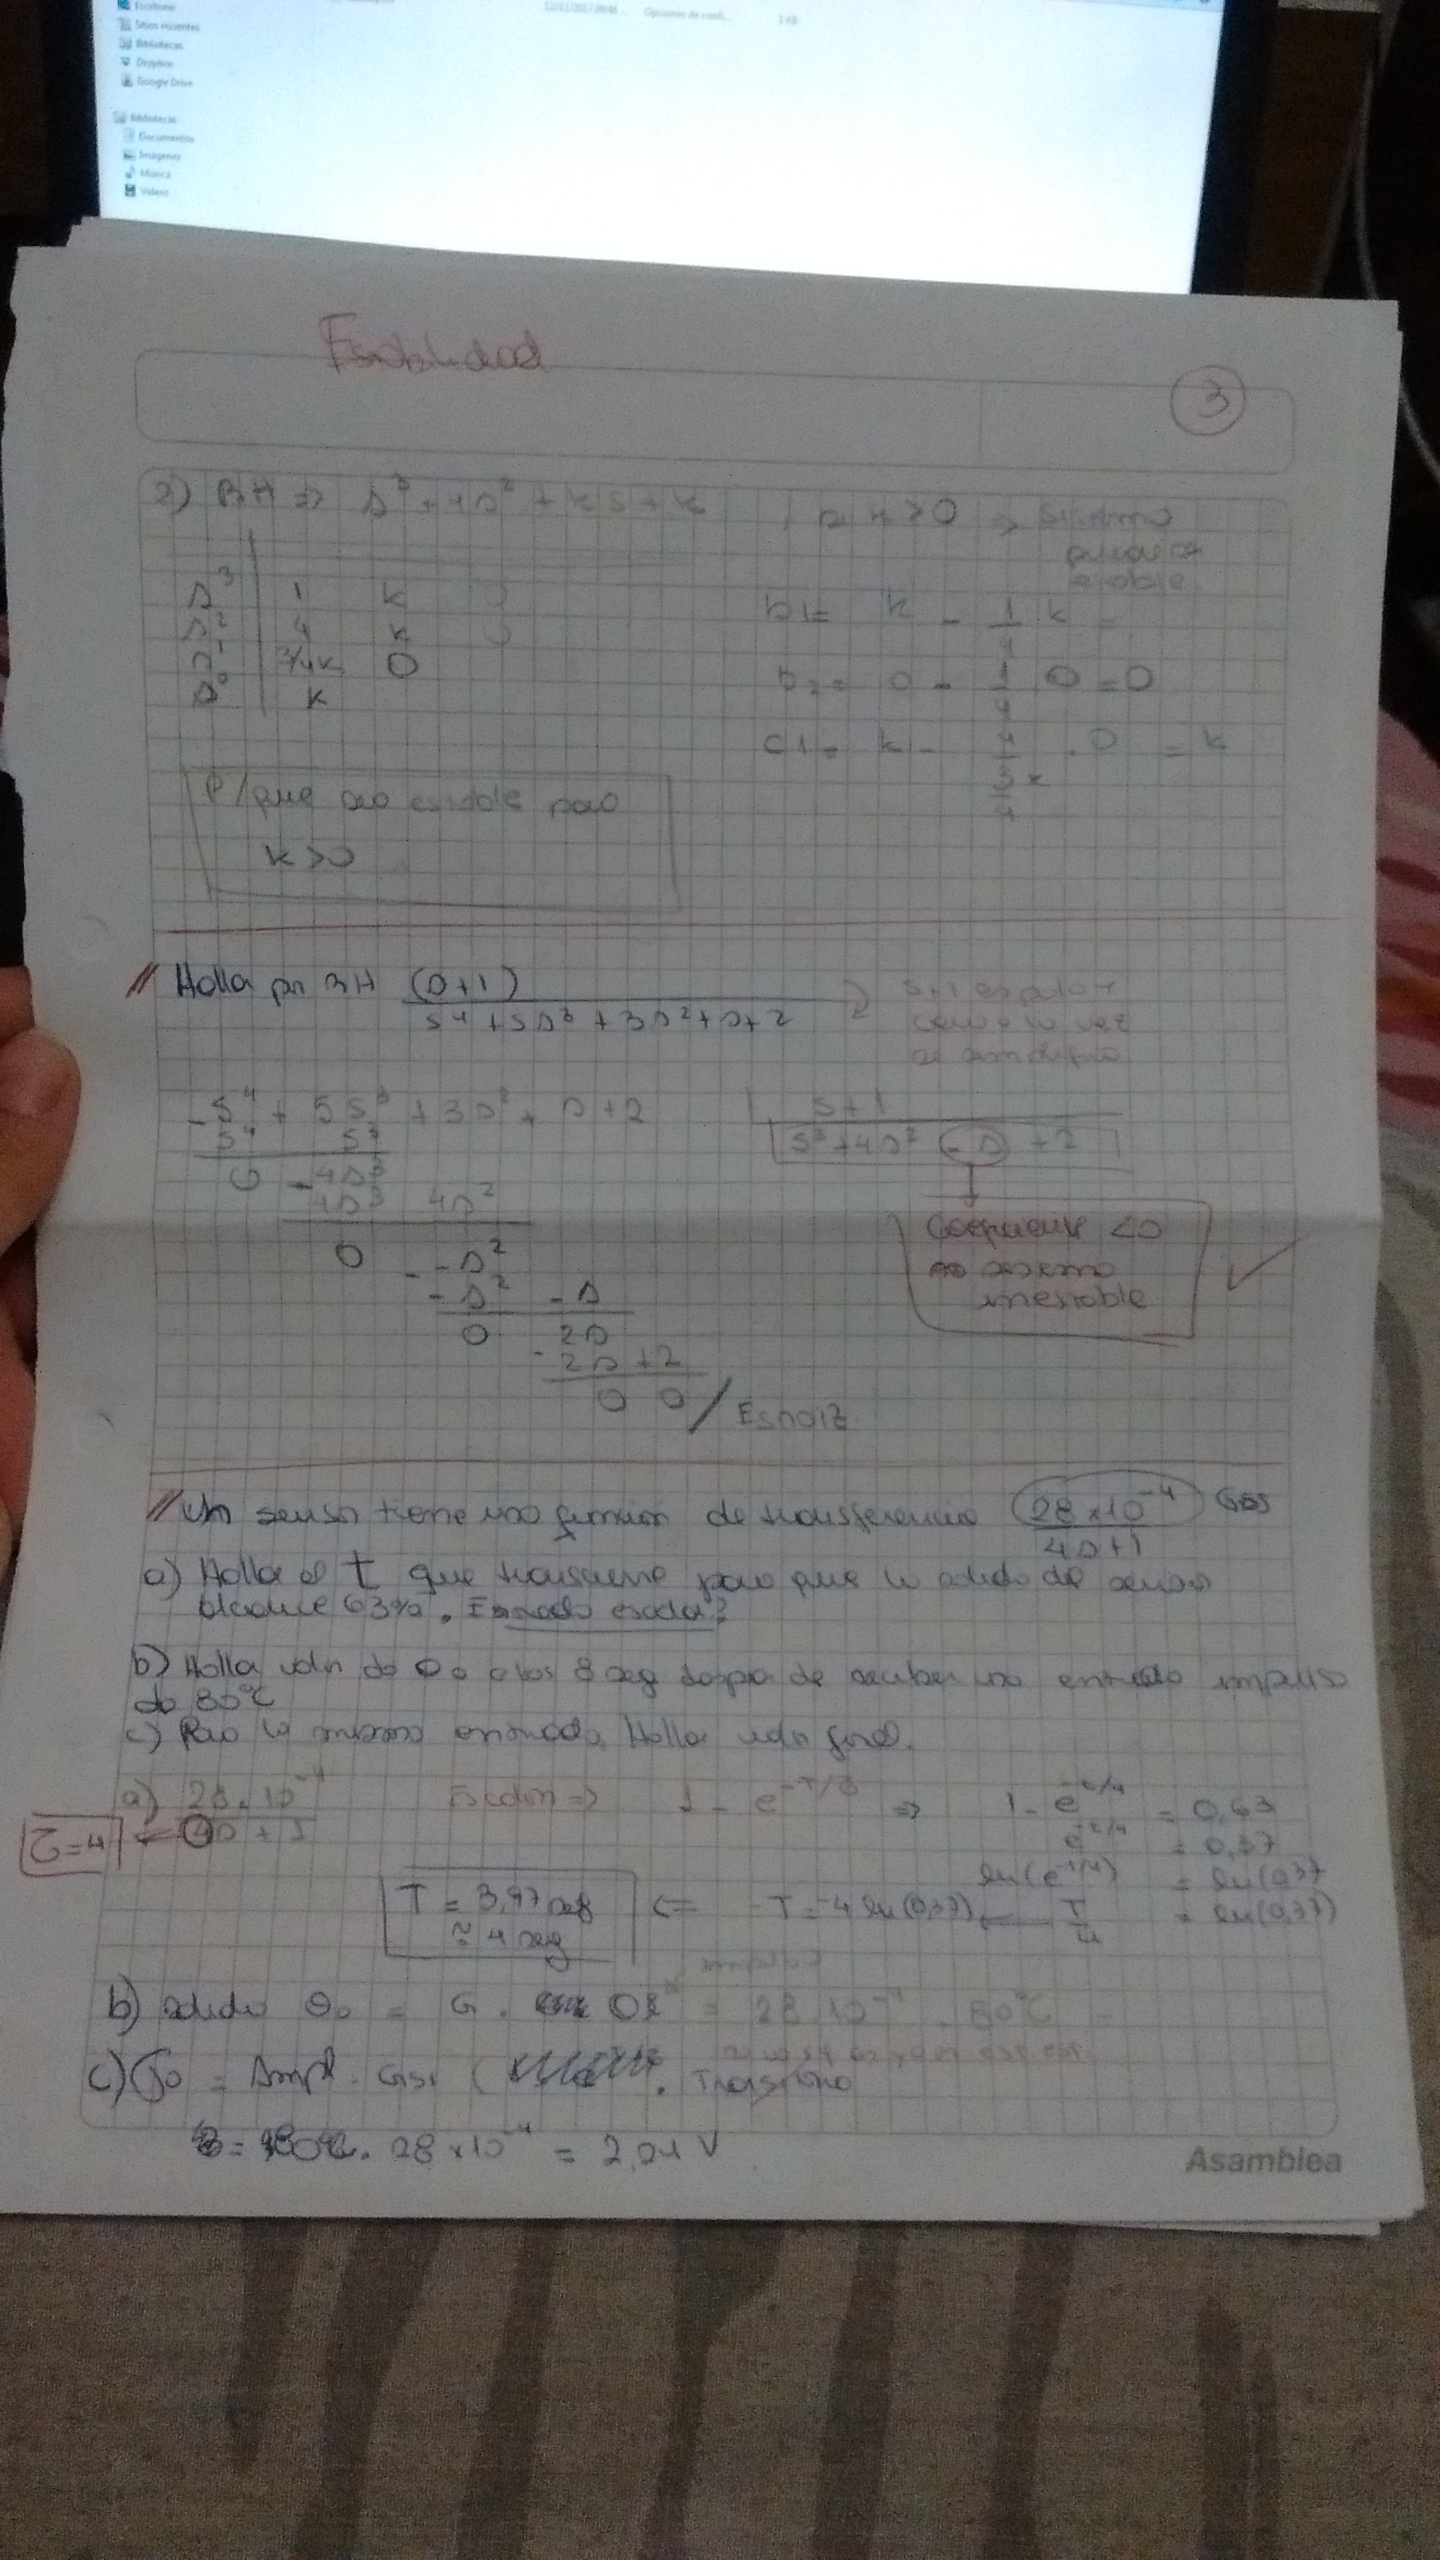 Escritorio
Sitios recientes
Bibliotecas
Dropbox
Google Drive
12/12/2017 09:46 Opciones de confi... 1 KB
Bibliotecas
Documentos
Imágenes
Música
Videos
Estabilidad
3
2) RH ⇒ s³ + 4s² + ks + k , si k > 0 ⇒ sistema
puede ser
estable
s³ | 1 k 0
s² | 4 k 0
s¹ | 3/4k 0
s⁰ | k
b1 = k - 1/4 k =
b2 = 0 - 1/4 0 = 0
c1 = k - 4/(3/4 k) . 0 = k
P/que sea estable para
k > 0
// Halla por RH (s+1)/(s⁴ + 5s³ + 3s² + s + 2)
s+1 es polo y
cero a la vez
se simplifica
- s⁴ + 5s³ + 3s² + s + 2 | s+1
s⁴ s³ s³ + 4s² - s + 2
0 - 4s³
4s³ 4s²
0 - - s²
- s² - s
0 2s
- 2s + 2
0 0 / Es raiz
Coeficiente < 0
sistema
inestable
// Un sensor tiene una funcion de transferencia 28 x 10⁻⁴/(4s+1) G(s)
a) Halla el t que transcurre para que la salida del sensor
alcance 63%. Entrada escalon?
b) Halla valor de θo a los 8 seg despues de recibir una entrada impulso
de 80°C
c) Para la misma entrada, Halla valor final.
a) 28 . 10⁻⁴/(4s + 1) Escalon ⇒ 1 - e^(-T/τ) ⇒ 1 - e^(-t/4) = 0,63
τ = 4
e^(-t/4) = 0,37
ln(e^(-t/4)) = ln(0,37
T = 3,97 seg ⇐ -T = 4 ln(0,37) ← - T/4 = ln(0,37)
≈ 4 seg
impulso
b) salida θo = G . θi = 28 10⁻⁴ . 80°C =
c) = Ampl. G(s) ( . Transitorio
= 80°C . 28 x 10⁻⁴ = 2,24 V
Asamblea